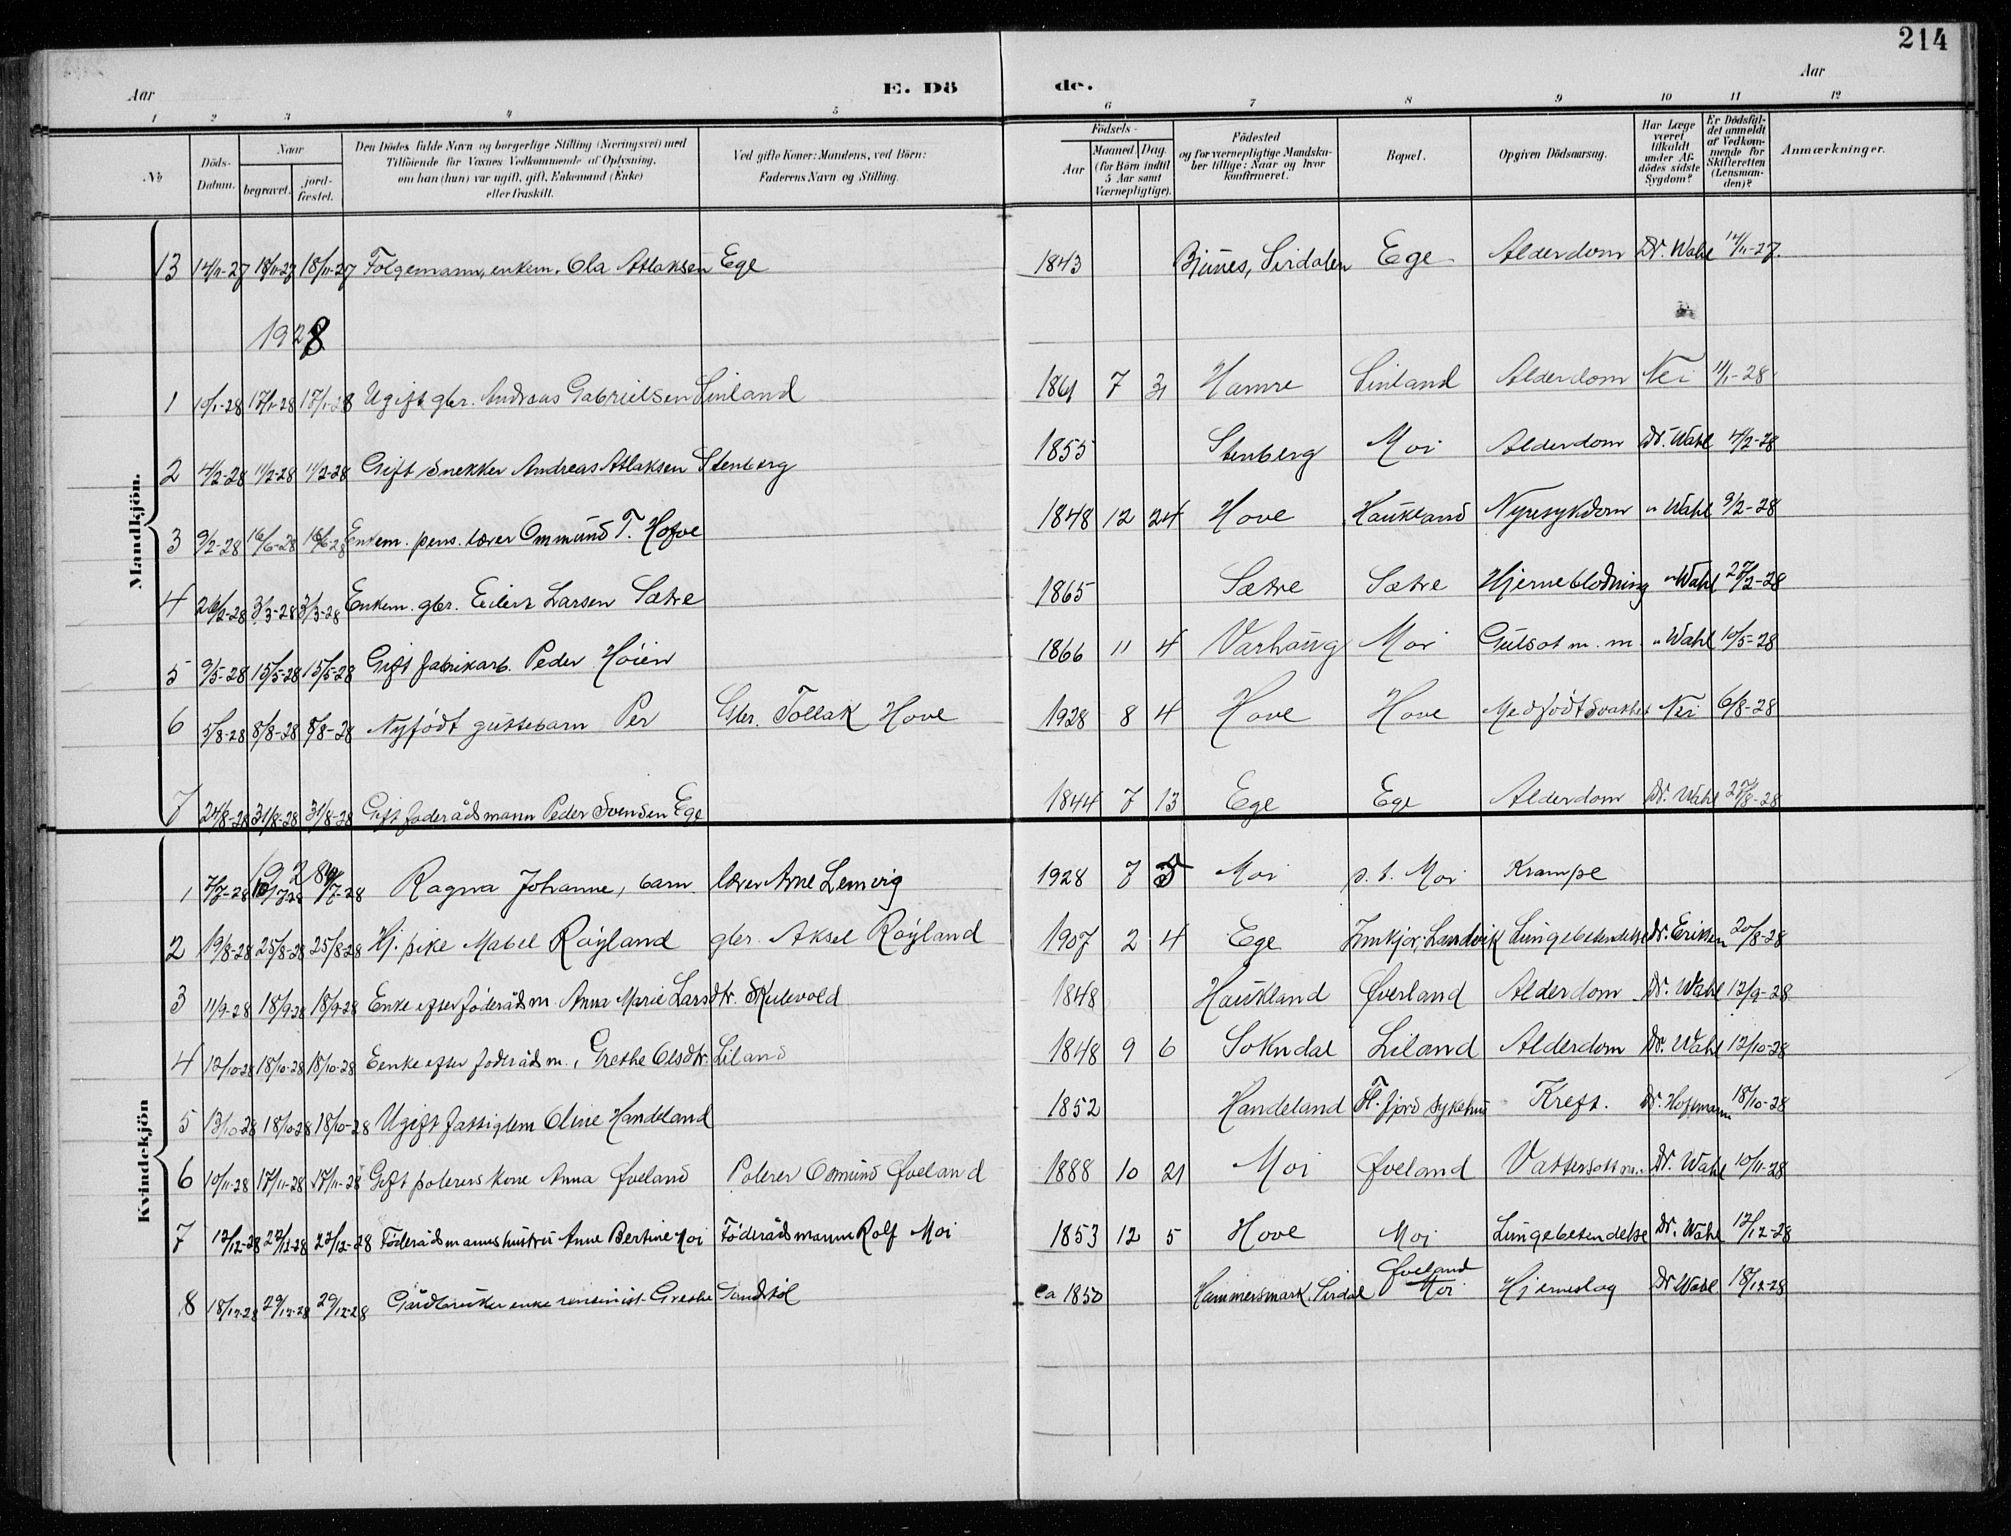 214
Aar
E. Dö
de.
Aar
1 2 3 4 5 6 7 8 9 10 11 12
No
Döds-Datum.
Naar
begravet.
jord-fæstet.
Den Dödes fulde Navn og borgerlige Stilling (Næringsvei) med
Tilföiende for Voxnes Vedkommende af Oplysning,
om han (hun) var ugift, gift, Enkemand (Enke)
eller fraskilt.
Ved gifte Koner: Mandens, ved Börn:
Faderens Navn og Stilling.
Födsels-
Aar
Maaned Dag
(for Börn indtil
5 Aar samt
Værnepligtige).
Födested
og for værnepligtige Mandska-
ber tillige: Naar og hvor
konfirmeret.
Bopæl.
Opgiven Dödsaarsag.
Har Læge
været
tilkaldt
under Af-
dödes sidste
Sygdom?
Er Dödsfal-
det anmeldt
af Vedkom-
mende for
Skifteretten
(Lensman-
den)?
Anmærkninger.
Mandkjön.
13 14/11-27 18/11-27 18/11-27 Folgemann, enkem. Ola Atlaksen Ege 1843 Bjunes, Sirdalen Ege Alderdom Dr. Wahl 14/11-27.
1928
1 10/1-28 17/1-28 17/1-28 Ugift gbr. Andreas Gabrielsen Sinland 1861 7 31 Hamre Sinland Alderdom Nei 11/1-28
2 4/2-28 11/2-28 11/2-28 Gift Snekker Andreas Atlaksen Stenberg 1855 Stenberg Moi Alderdom Dr. Wahl 4/2-28
3 9/2-28 16/6-28 16/6-28 Enkem. pens. lærer Ommund T. Hofve 1848 12 24 Hove Haukland Nyresykdom " Wahl 9/2-28
4 26/2-28 3/3-28 3/3-28 Enkem. gbr. Eilert Larsen Sætre 1865 Sætre Sætre Hjerneblodning " Wahl 27/2-28
5 9/5-28 15/5-28 15/5-28 Gift fabrikarb. Peder Höien 1866 11 4 Varhaug Moi Gulsot m. m. " Wahl 10/5-28
6 5/8-28 8/8-28 8/8-28 Nyfödt guttebarn Per Gbr. Tollak Hove 1928 8 4 Hove Hove Medfödt svakhet Nei 6/8-28
7 24/8-28 31/8-28 31/8-28 Gift foderådsmann Peder Svendsen Ege 1844 7 13 Ege Ege Alderdom Dr. Wahl 27/8-28
Kvindekjön
1928
1 7/7-28 10/7-28 /7-28 Ragna Johanne, barn lærer Arne Lemvig 1928 7 5 Moi p. t. Moi Krampe
2 19/8-28 25/8-28 25/8-28 Hj. pike Mabel Röyland gbr. Aksel Röyland 1907 2 4 Ege Landvik Lungebetendelse Dr. Eriksen 20/8-28
3 11/9-28 18/9-28 18/9-28 Enke efter föderådsm. Anna Marie Larsdtr. Skulevold 1848 Haukland Øverland Alderdom Dr. Wahl 12/9-28
4 12/10-28 18/10-28 18/10-28 Eenke efter foderådsm., Grethe Olsdtr. Liland 1848 9 6 Sokndal Liland Alderdom Dr. Wahl 12/10-28
5 13/10-28 18/10-28 18/10-28 Ugift fattiglem Oline Handeland 1852 Handeland Fl. fjord sykehus Kreft. Dr. Hofmann 18/10-28
6 10/11-28 17/11-28 17/11-28 Gift polererskone Anna Øveland Polerer Osmund Øveland 1888 10 21 Moi Øveland Vattersott m.. Dr. Wahl 10/11-28
7 12/12-28 22/12-28 22/12-28 Föderådsmannshustru Anne Bertine Moi Föderådsmann Rolf Moi 1853 12 5 Hove Moi Lungebetendelse Dr. Wahl 12/12-28
8 18/12-28 29/12-28 29/12-28 Gårdbruker enke Grethe Tandstöl ca 1850 Hammersmark. Sirdal Øveland Moi Hjerneslag Dr Wahl 18/12-28